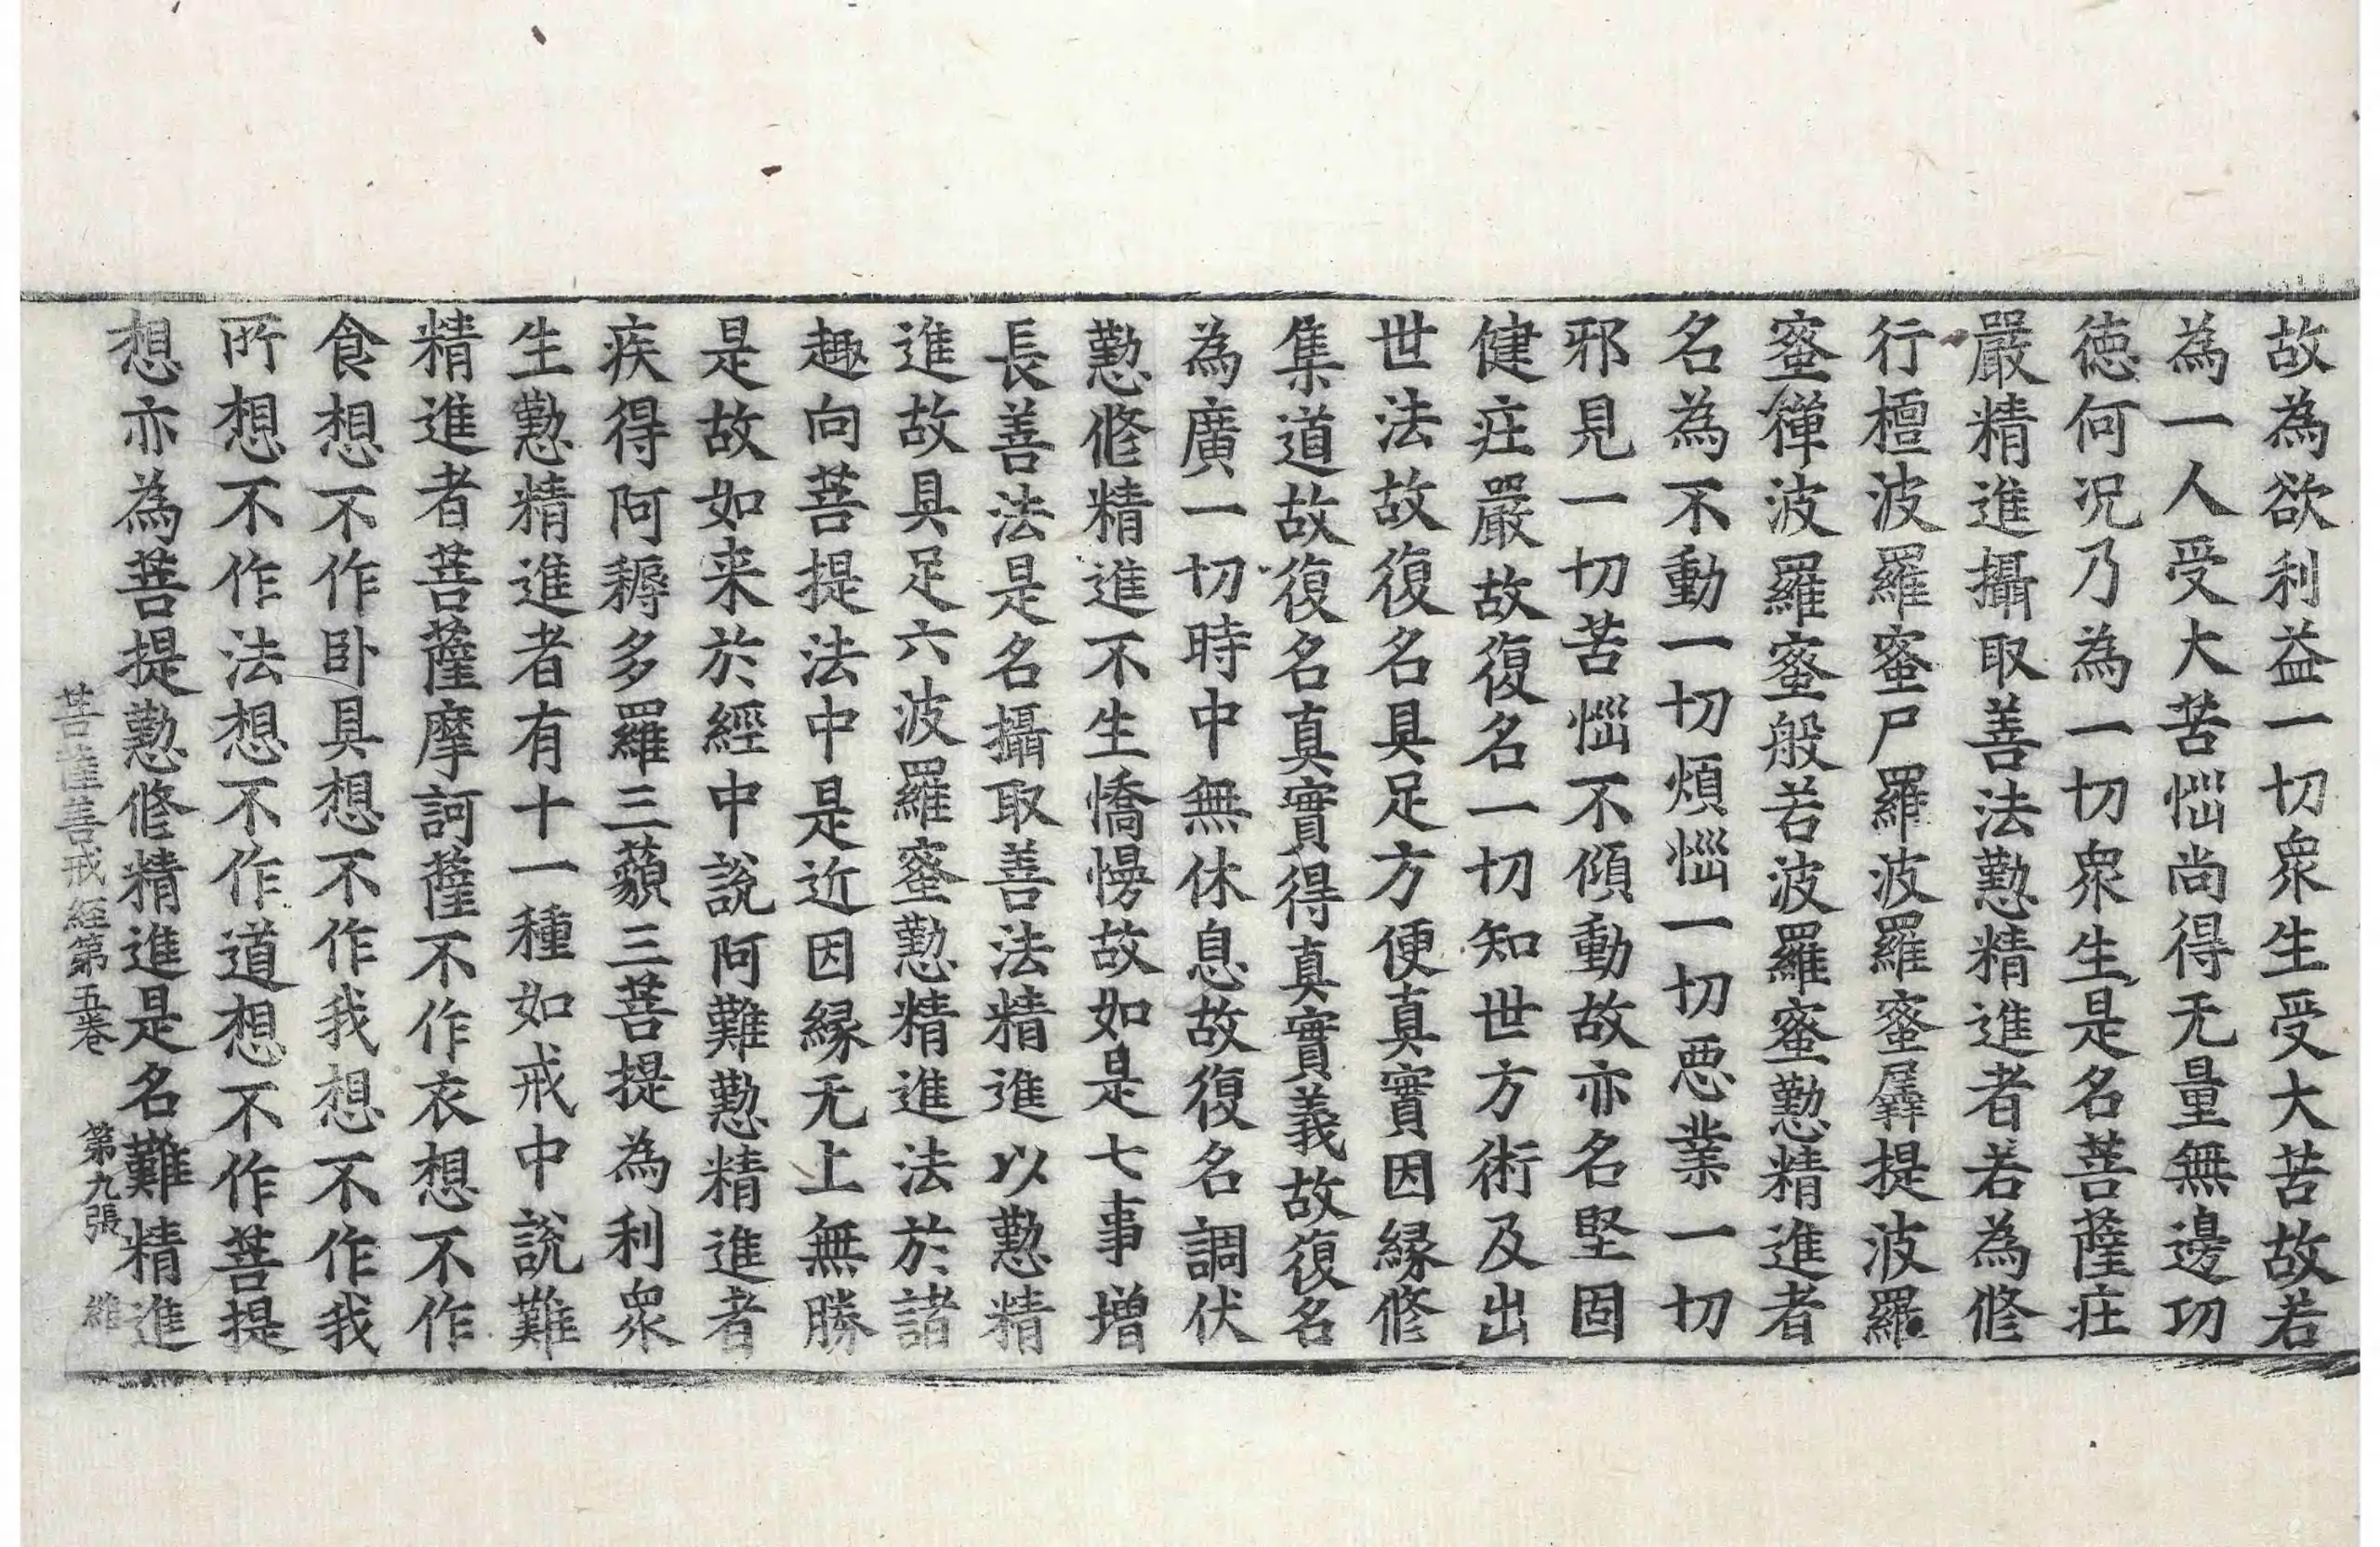 故為欲利益一切衆生受大苦故若
為一人受大苦惱尚得无量無邊功
徳何况乃為一切衆生是名菩薩庄
嚴精進攝取善法懃精進者若為修
行檀波羅蜜尸羅波羅蜜羼提波羅
蜜禪波羅蜜般若波羅蜜懃精進者
名為不動一切煩惱一切惡業一切
邪見一切苦惱不傾動故亦名堅固
健庄嚴故復名一切知世方術及出
世法故復名具足方便真實因縁修
集道故復名真實得真實義故復名
為廣一切時中無休息故復名調伏
懃修精進不生憍慢故如是七事增
長善法是名攝取善法精進以懃精
進故具足六波羅蜜懃精進法於諸
趣向菩提法中是近因縁无上無勝
是故如来於經中說阿難懃精進者
疾得阿耨多羅三藐三菩提為利衆
生懃精進者有十一種如戒中說難
精進者菩薩摩訶薩不作衣想不作
食想不作卧具想不作我想不作我
所想不作法想不作道想不作菩提
想亦為菩提懃修精進是名難精進
菩薩善戒經第五卷 第九張 維